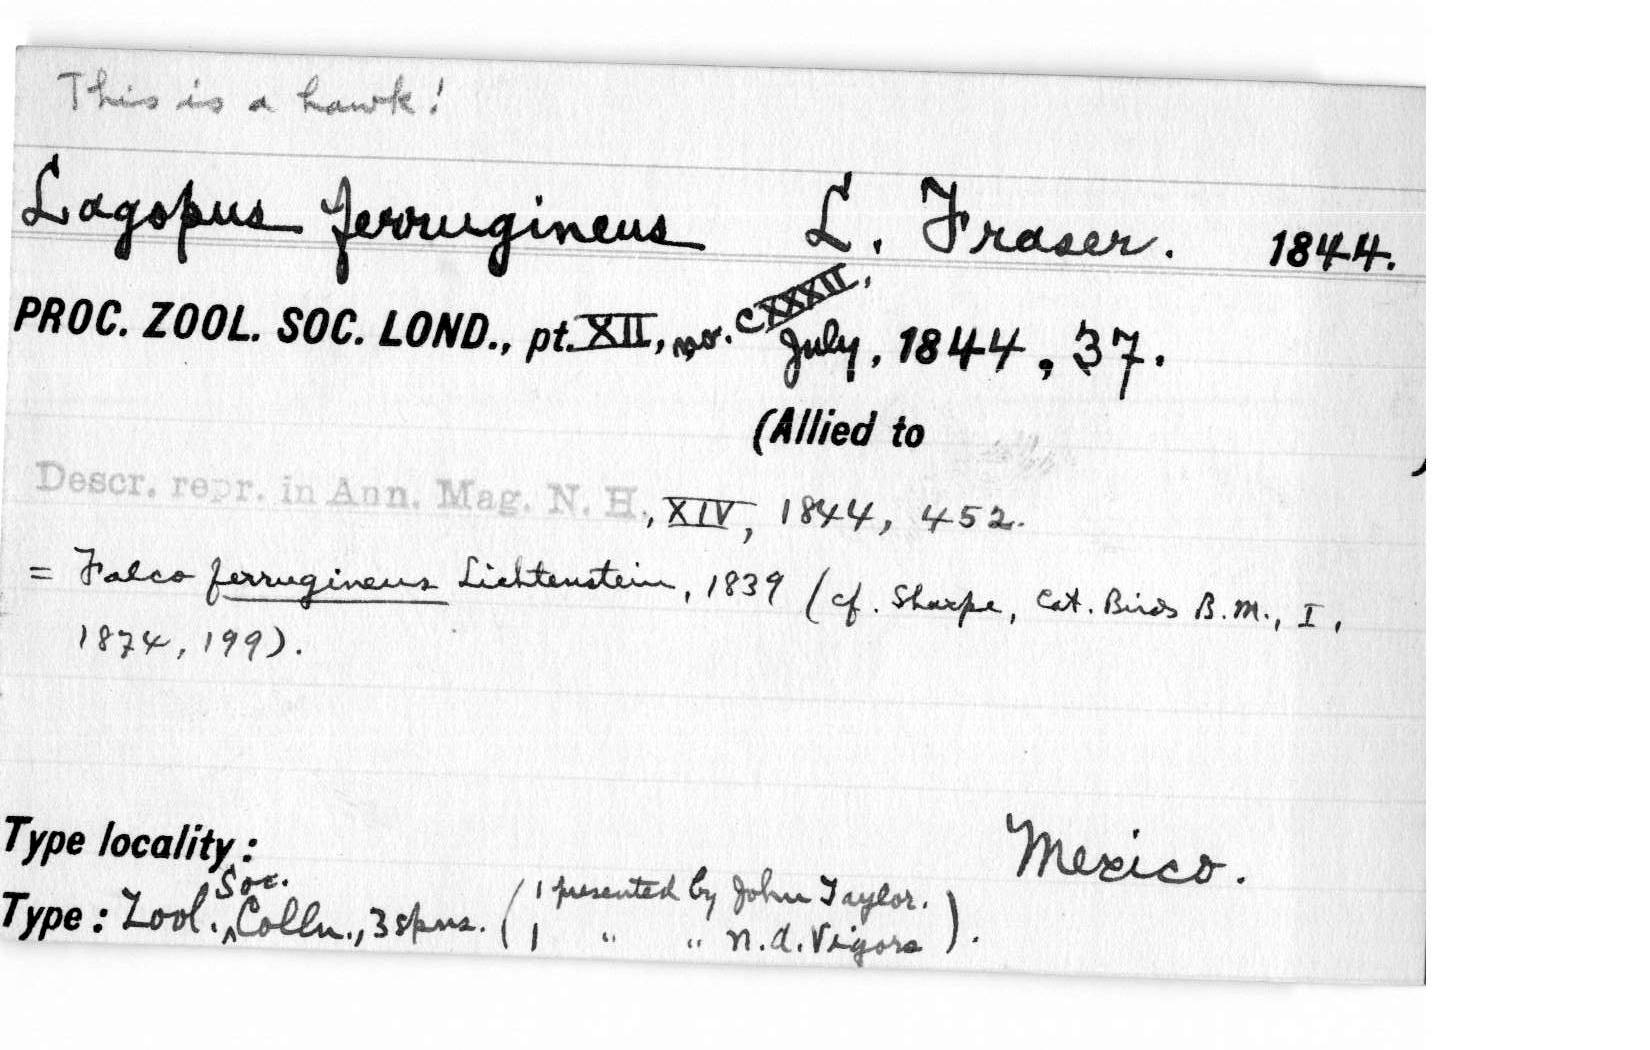 This is a hawk!
Lagopus ferrugineus L. Fraser. 1844.
PROC. ZOOL. SOC. LOND., pt. XII, no. CXXXII, July, 1844, 37.
(Allied to )
Descr. repr. in Ann. Mag. N. H., XIV, 1844, 452.
= Falco ferrugineus Lichtenstein, 1839 (cf. Sharpe, Cat. Birds B.M., I,
1874, 199).
Type locality: Mexico.
Type: Zool. Soc. Colln., 3 spns. (1 presented by John Taylor.
1 " " N. A. Vigors).